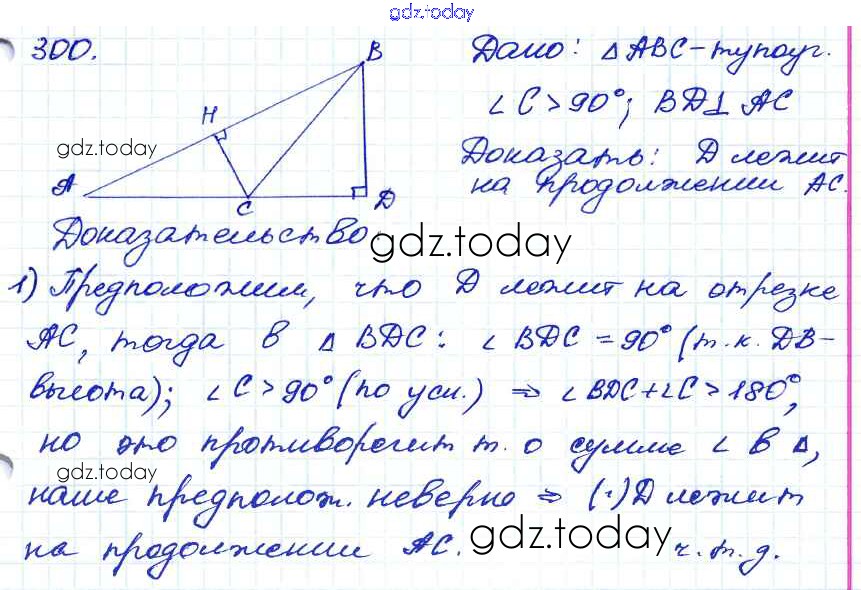 gdz.today
300.
B
H
A
C
D
gdz.today
Дано: △ABC-тупоуг.
∠C>90°; BD⊥AC
Доказать: D лежит
на продолжении AC.
Доказательство.
gdz.today
1) Предположим, что D лежит на отрезке
AC, тогда в △BDC: ∠BDC=90° (т.к. DB-
высота); ∠C>90° (по усл.) ⇒ ∠BDC+∠C>180°,
но это противоречит т. о сумме ∠ в △,
gdz.today
наше предполож. неверно ⇒ (·)D лежит
на продолжении AC.
gdz.today
ч.т.д.